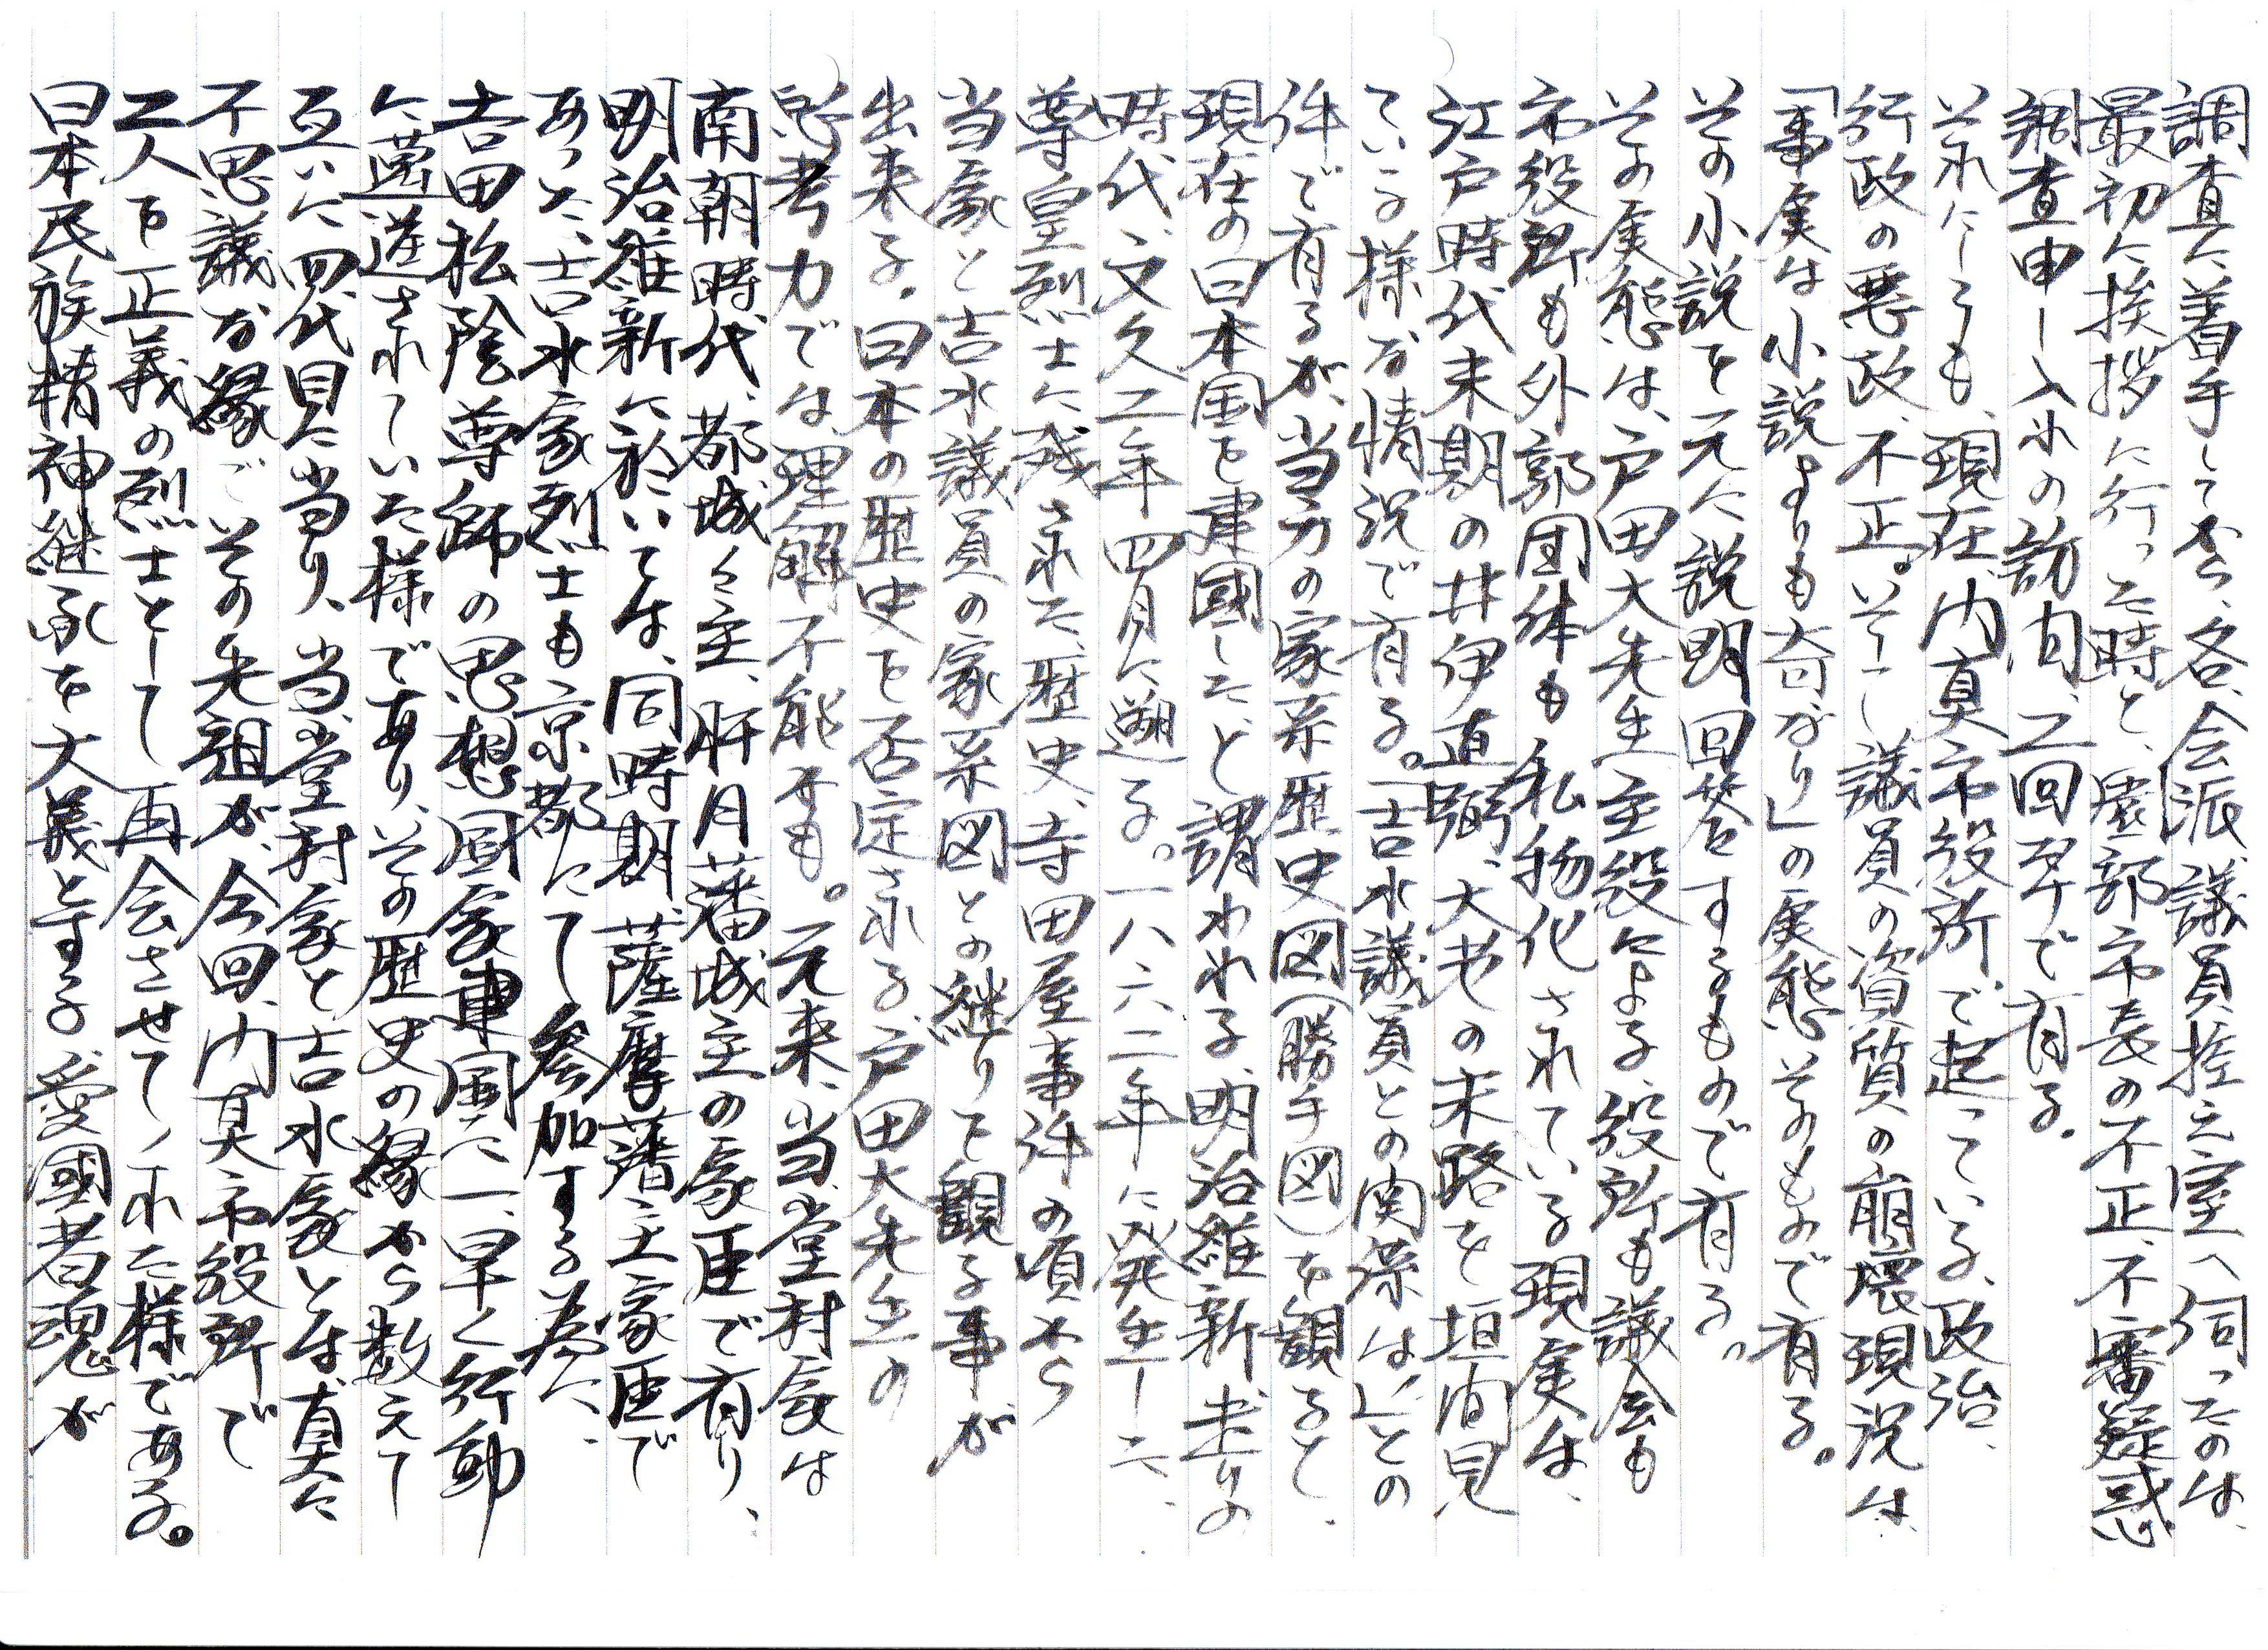 調査に着手してから、各、会派議員控え室へ伺ったのは、
最初に挨拶に行った時と、園部市長の不正、不審疑惑
調査申し入れの訪問、二回卆で有る。
それにしても、現在、内真市役所、で起っている、政治、
行政の悪政、不正。そして議員の資質の崩壊現況は、
「事実は小説よりも奇なり」の実態そのもので有る。
その小説を元に説明回答するもので有る。
その実態は、戸田大先生主役による、役所も議会も
市役所も外郭団体も私物化されている現実は、
江戸時代末期の井伊直弼、大老の末路を垣間見
ている様な情況で有る。「吉水議員との関係は」との
件で有るが、当方の家系歴史図(勝手図)を観ると、
現在の日本国を建國したと謂われる、明治維新走りの
時代、文久二年四月に遡る。一八六二年に発生した、
尊皇烈士に残された、歴史、寺田屋事件の頃から
当家と吉水議員の家系図との継りを観る事が
出来る。日本の歴史を否定される、戸田大先生の
思考力では、理解不能かも。元来、当、堂村家は
南朝時代、都城々主、肝月藩城主の家臣で有り、
明治維新に於いては、同時期、薩摩藩主家臣で
あった、吉水家烈士も京都にて参加する為に、
吉田松陰尊師の思想国家建国に一早く行動
に邁進されていた様であり、その歴史の縁から数えて
互いに四代目に当り、当、堂村家と、吉水家とは、真に
不思議な縁でその先祖が、今回、内真市役所で
二人を正義の烈士として再会させてくれた様である。
日本民族精神継承を大義とする愛國者魂が